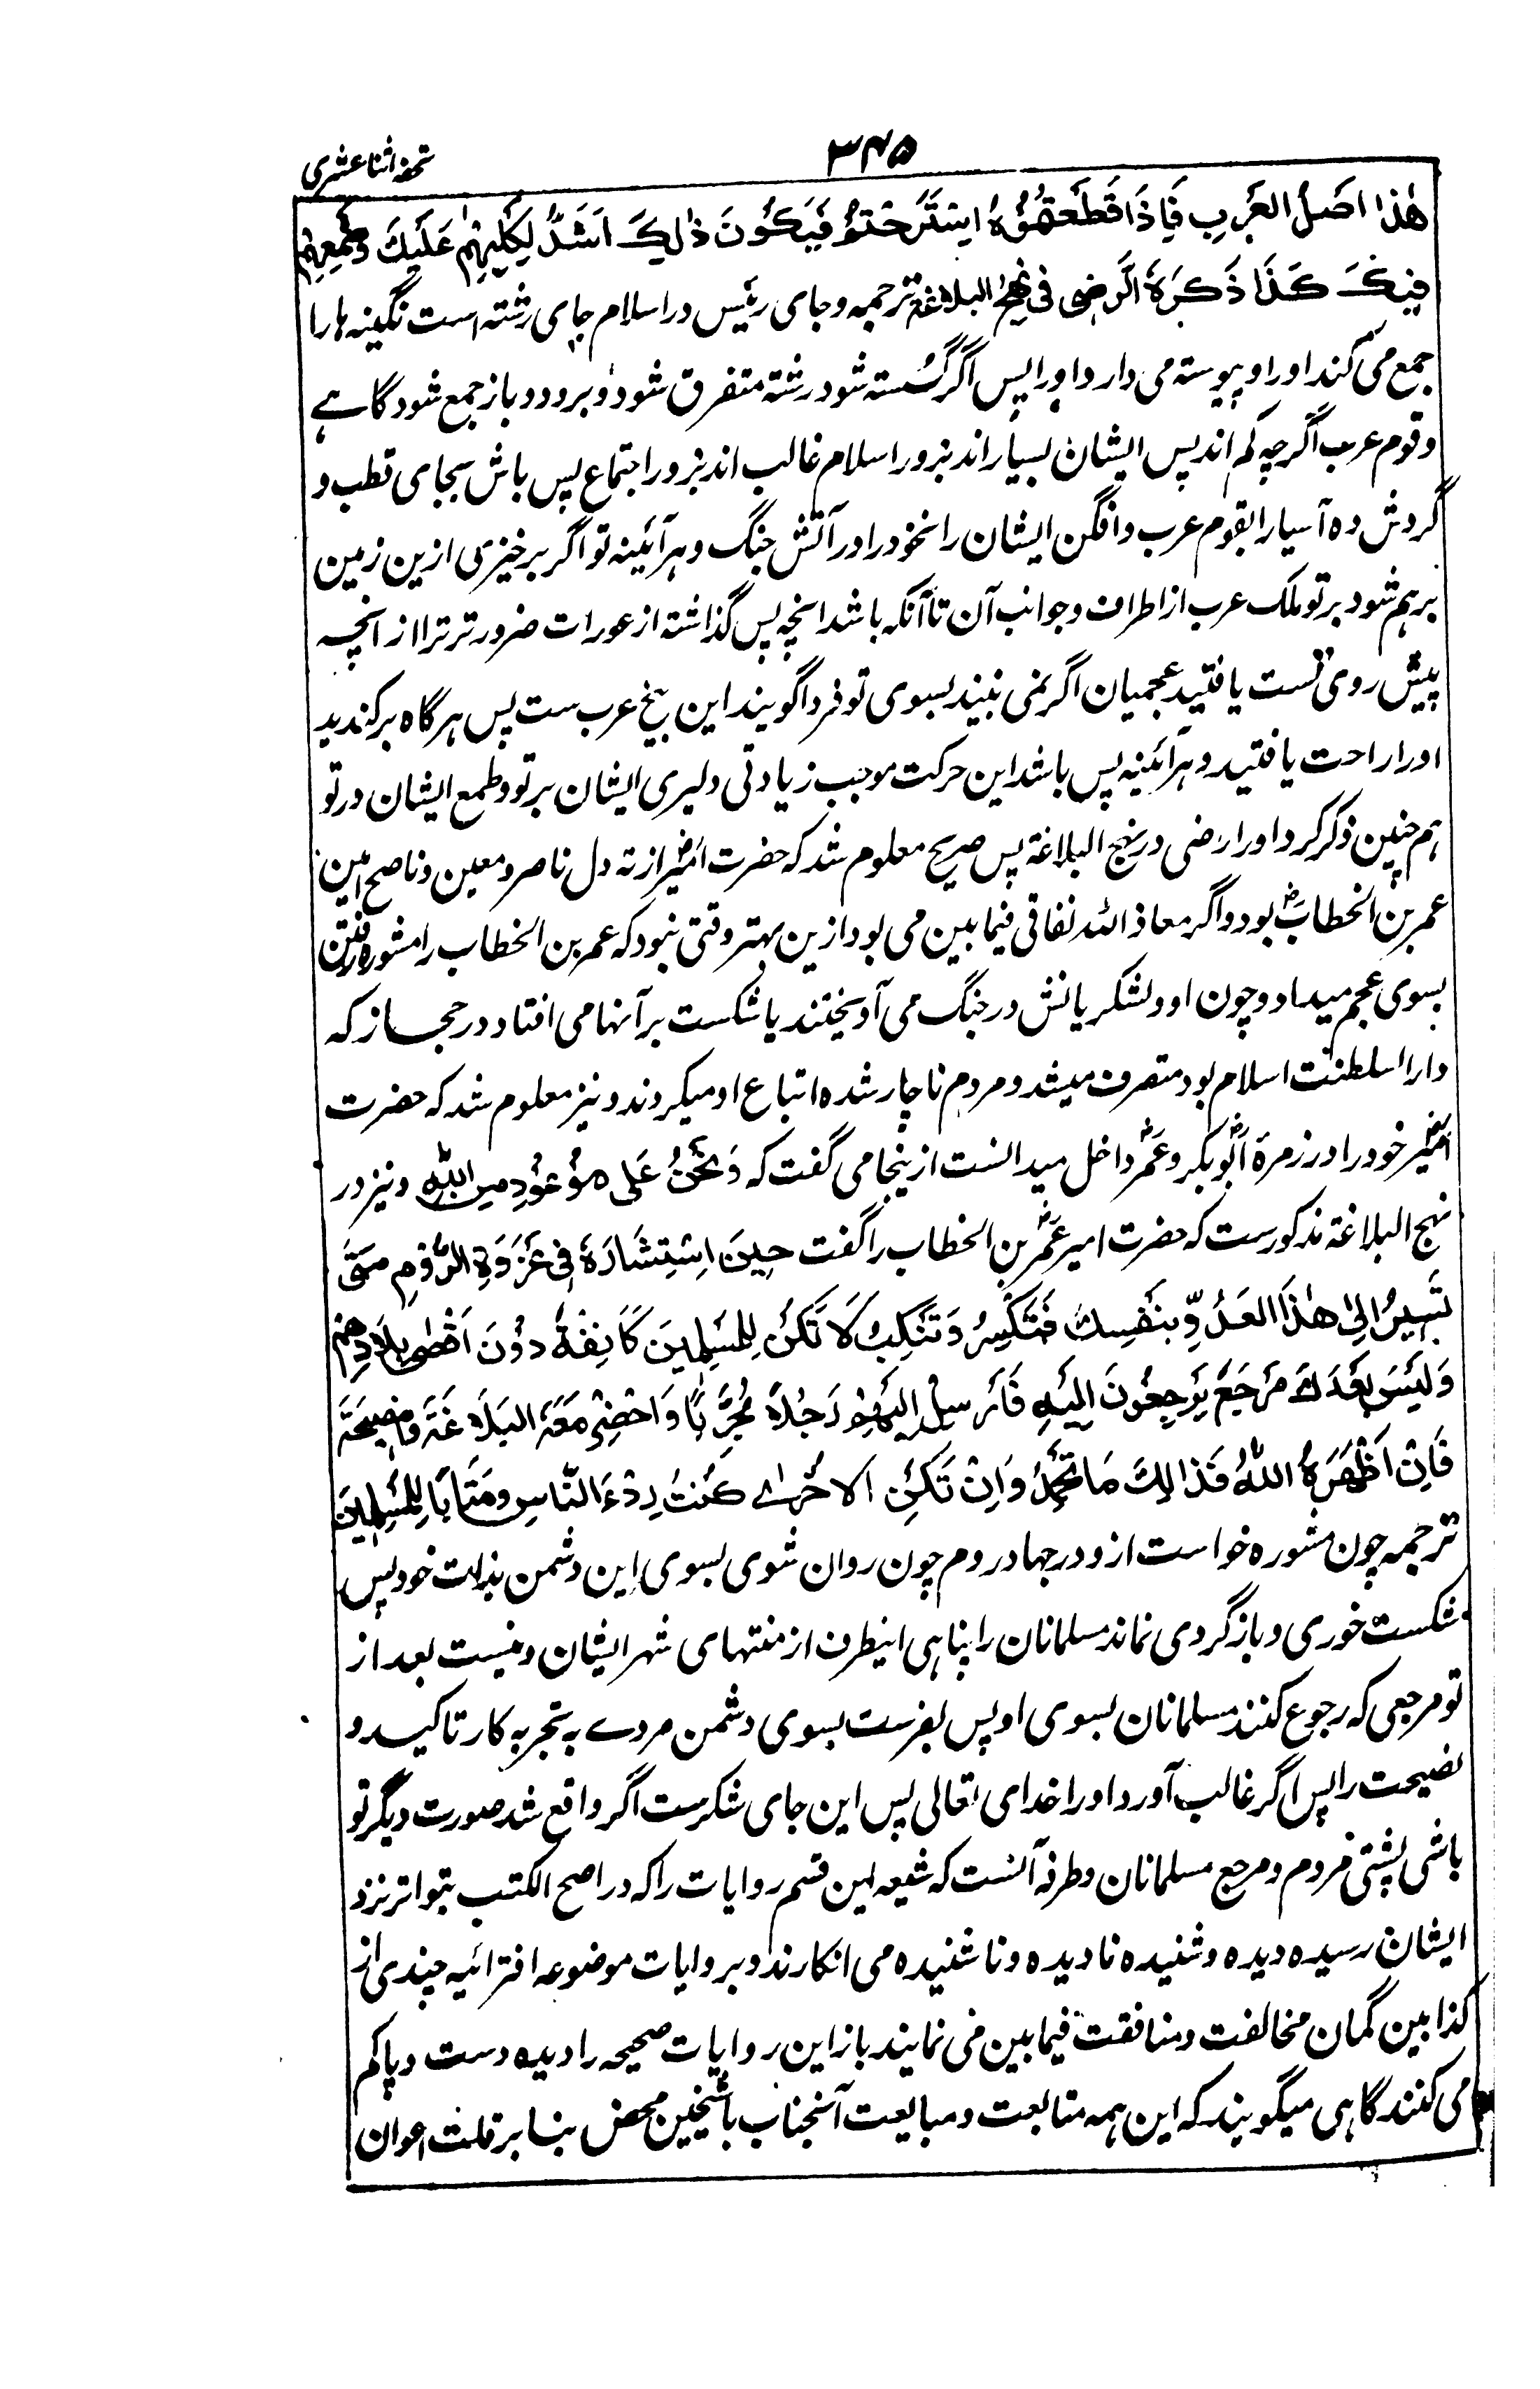 تحفه اثنا عشری
۳۴۵
هٰذَا اَصْلُ الْعَرَبِ فَاِذَا قَطَعْتُمُوْهُ اِسْتَرَحْتُمْ فَيَكُوْنَ ذٰلِكَ اَشَدَّ لِكَلَبِهِمْ عَلَيْكَ وَطَمَعِهِمْ
فِيْكَ كَذَا ذَكَرَهُ الرَّضِی فی نهج البلاغة ترجمه وجای رئیس در اسلام جای رشته است نگینه هارا
جمع می کند اورا و پیوسته می دارد اورا پس اگر گسسته شود رشته متفرق شود و برود و باز جمع شود گاهے
و قوم عرب اگرچه کم اند پس ایشان بسیار اند بزور اسلام غالب اند بزور اجتماع پس باش بجای قطب و
گردش ده آسیا را بقوم عرب و افگن ایشان را نخود را در آتش جنگ و هر آئینه تو اگر برخیزی ازین زمین
برهم شود بر تو ملک عرب از اطراف و جوانب آن تا آنکه باشد انچه پس گذاشته از عورات ضرورتر ترا از انچه
پیش روی تست یافتید عجمیان اگر نمی بینند بسوی تو فردا گویند این بیخ عرب ست پس هرگاه برکندید
اورا راحت یافتید و هر آئینه پس باشد این حرکت موجب زیادتی دلیری ایشان بر تو و طمع ایشان در تو
هم چنین ذکر کرد اورا رضی در نهج البلاغة پس صریح معلوم شد که حضرت امیرؓ از ته دل ناصر و معین و ناصح امین
عمر بن الخطابؓ بود و اگر معاذ الله نفاقی فیما بین می بود ازین بهتر وقتی نبود که عمر بن الخطاب را مشوره رفتن
بسوی عجم میداد و چون او و لشکریانش در جنگ می آویختند یا شکست بر آنها می افتاد در حجاز که
دار السلطنت اسلام بود متصرف میشد و مردم ناچار شده اتباع او میکردند و نیز معلوم شد که حضرت
امیرؓ خود را در زمرۀ ابوبکرؓ و عمرؓ داخل میدانست ازینجا می گفت که وَنَحْنُ عَلٰی مَوْعُوْدٍ مِنَ اللّٰهِ و نیز در
نهج البلاغة مذکورست که حضرت امیر عمرؓ بن الخطاب را گفت حِيْنَ اِسْتِشَارَهٗ فِیْ غَزْوَةِ الرُّوْمِ مَتٰی
تَسِيْرُ اِلٰی هٰذَا الْعَدُوِّ بِنَفْسِكَ فَتُكْسَرُ وَتَنْكِبُ لَا تَكُنْ لِلْمُسْلِمِيْنَ كَانِفَةٌ دُوْنَ اَقْصٰی بِلَادِهِمْ
وَلَيْسَ بَعْدَكَ مَرْجَعٌ يَرْجِعُوْنَ اِلَيْهِ فَاَرْسِلْ اِلَيْهِمْ رَجُلًا مُجَرَّبًا وَاحْضِرْ مَعَهُ الْبَلَاغَةَ وَالنَّصِيْحَةَ
فَاِنْ اَظْهَرَهُ اللّٰهُ فَذَالِكَ مَا تُحِبُّ وَاِنْ تَكُنِ الْاُخْرٰے كُنْتَ رِدْءَ النَّاسِ وَمَثَابًا لِلْمُسْلِمِيْنَ
ترجمه چون مشوره خواست ازو در جهاد روم چون روان شوی بسوی این دشمن بذات خود پس
شکست خوری و باز گردی نماند مسلمانان را پناهی اینطرف از منتهای شهر ایشان و نیست بعد از
تو مرجعی که رجوع کنند مسلمانان بسوی او پس بفرست بسوی دشمن مردے به تجربه کار تاکید و
نصیحت را پس اگر غالب آورد اورا خدای تعالی پس این جای شکرست اگر واقع شد صورت دیگر تو
باشی پشتی مردم و مرجع مسلمانان و طرفه آنست که شیعه این قسم روایات را که در اصح الکتب بتواتر نزد
ایشان رسیده دیده و شنیده نادیده و ناشنیده می انکارند و بر روایات موضوعه افترائیه چندی از
کذابین گمان مخالفت و منافقت فیما بین می نمایند باز این روایات صحیحه را دیده دست و پا گم
می کنند گاهی میگویند که این همه متابعت و مبایعت آنجناب باشیخین محض بنا بر قلت اعوان